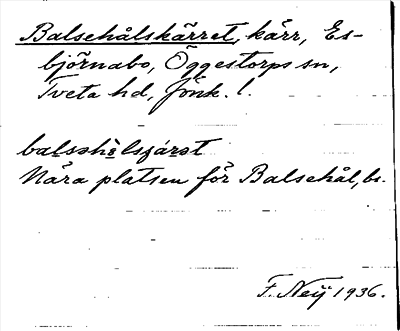 Balsehålskärret, kärr, Es-
björnabo, Öggestorps sn,
Tveta hd, Jönk. l.
Nära platsen för Balsehål, bs.
F. Neij 1936.